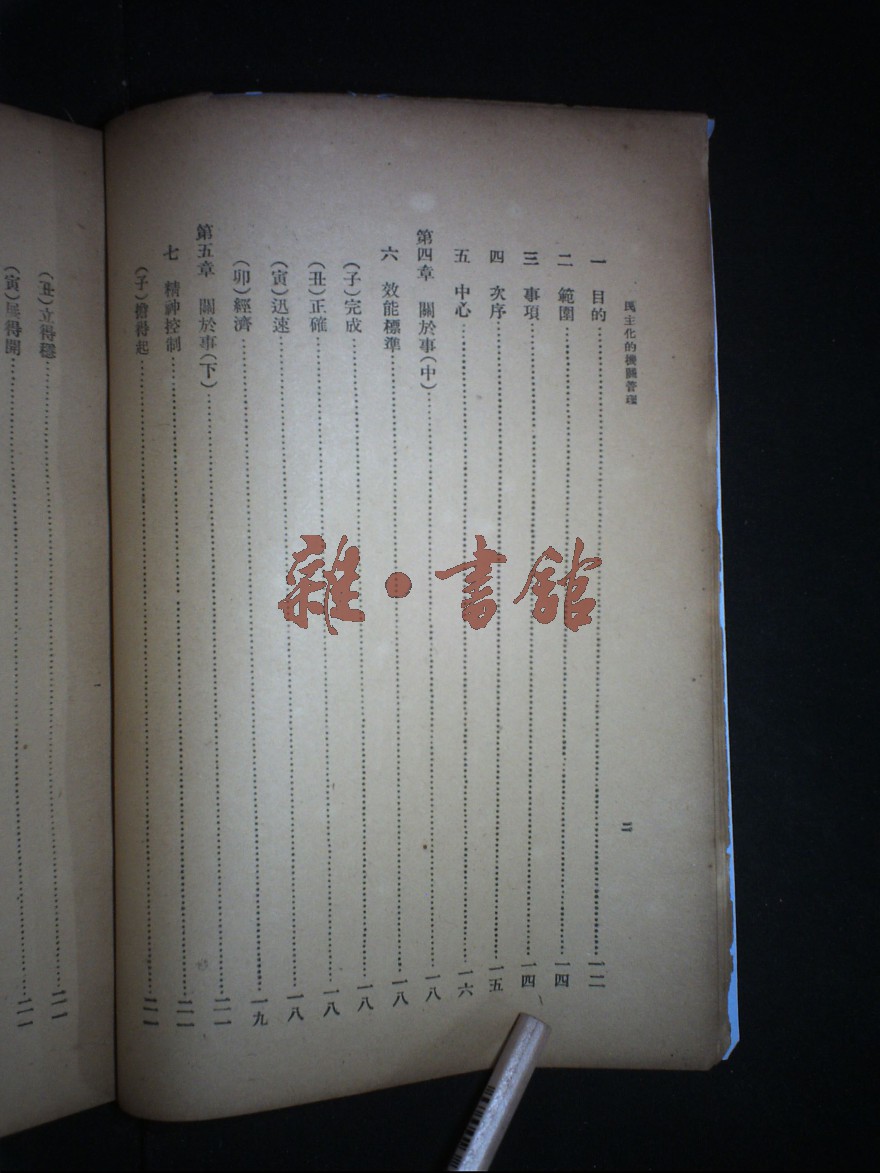 民主化的機關管理
二
一　目的……一二
二　範圍……一四
三　事項……一四
四　次序……一五
五　中心……一六
第四章　關於事(中)……一八
六　效能標準……一八
(子)完成……一八
(丑)正確……一八
(寅)迅速……一八
(卯)經濟……一九
第五章　關於事(下)……二一
七　精神控制……二一
(子)擔得起……二一
(丑)立得穩……二一
(寅)展得開……二一
雜·書館